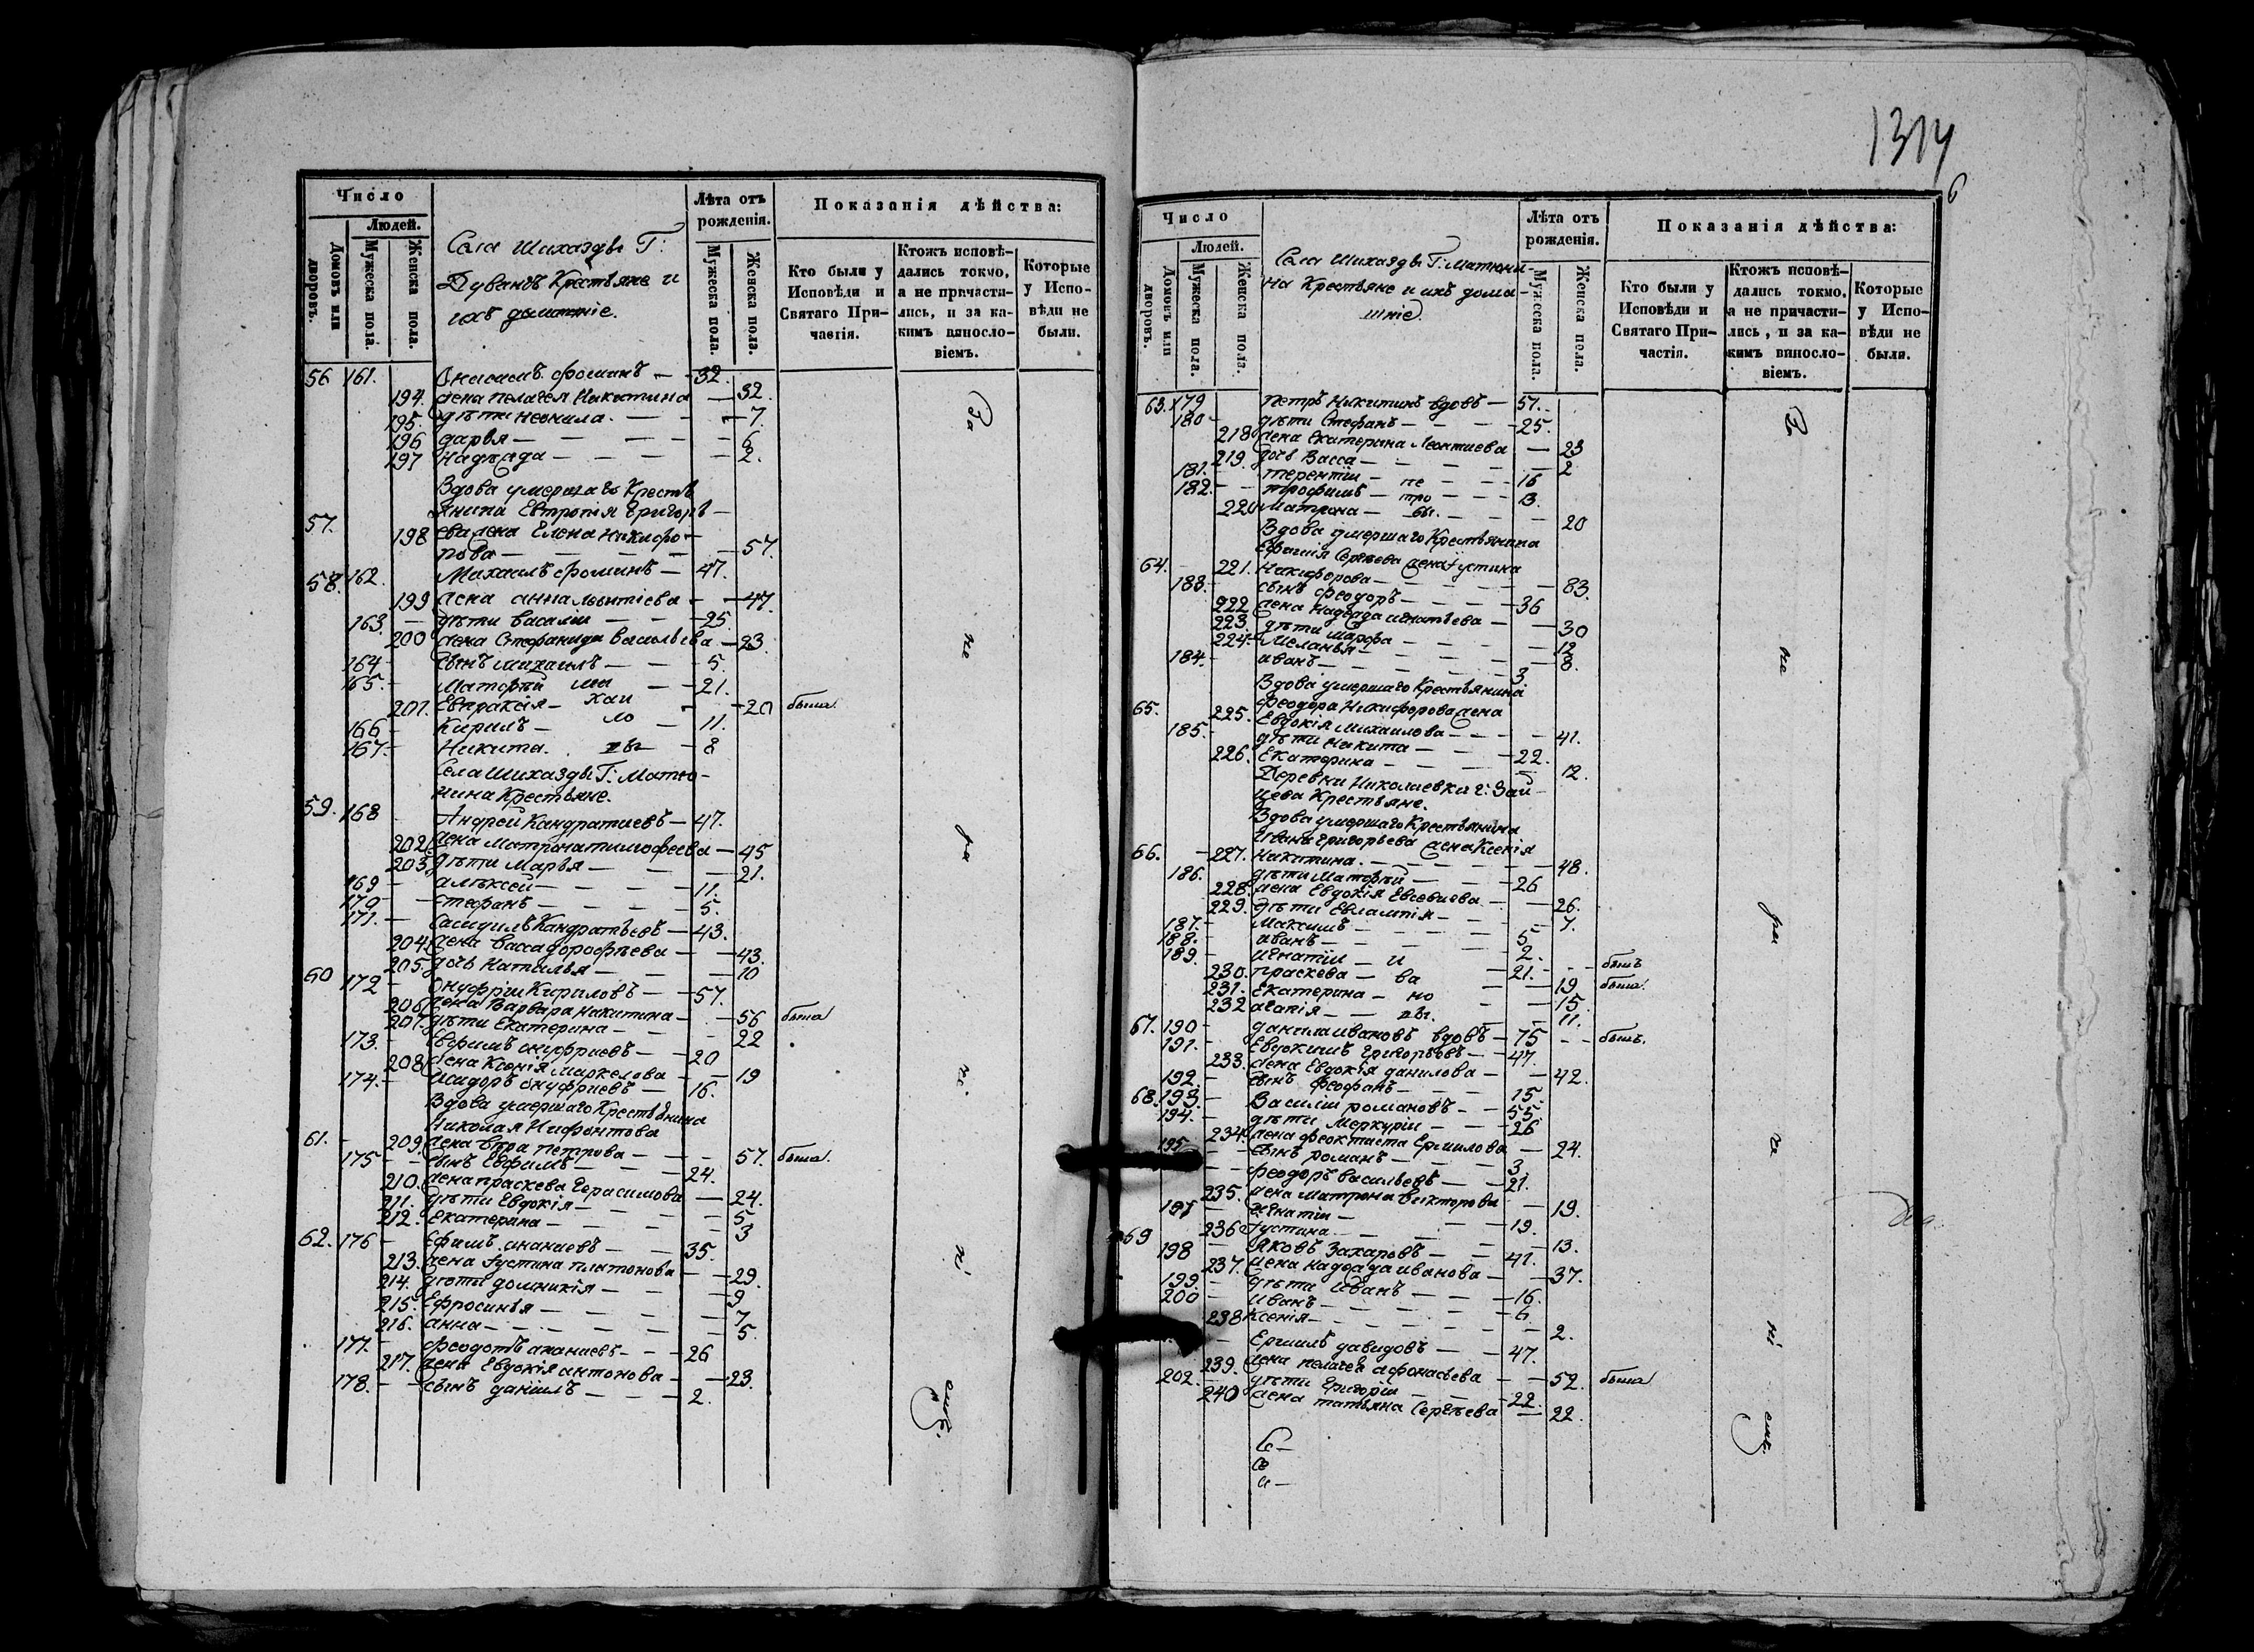 1314
6
Число
Людей.
Домовъ или дворовъ.
Мужеска пола.
Женска пола.
Села Шихазды Г:
Дуванъ Крестьяне и
ихъ домашніе.
Лѣта отъ рожденія.
Мужеска пола.
Женска пола.
Показанія дѣйства:
Кто были у Исповѣди и Святаго Причастія.
Ктожъ исповѣдались токмо, а не причастились, и за какимъ винословіемъ.
Которые у Исповѣди не были.
56 161. Онисимъ фоминъ — 32.
194. жена пелагея Никитина — 32.
195. дѣти неонила. — 7.
196 дарья — 6
197 надежда — 2.
Вдова умершаго Кресть
янина Евтропія Григорь
57. 198 ева жена Елена Никифо-
рова — 57.
58. 162. Михаилъ фоминъ — 47.
199 жена анна леонтіева — 47.
163. дѣти василій — 25.
200 жена Стефанида васильева — 23.
164 сынъ михаилъ — 5.
165. Матвѣй ми — 21.
201. Евпраксія — хаи — 20 была.
166 Кирилъ — ло — 11.
167. Никита. вы — 8
Села Шихазды Г: Матю-
нина Крестьяне.
59. 168 Андрей Кандратиевъ — 47.
202. жена Матрона тимофеева — 45
203. дѣти Марья — 21.
169 алѣксей — 11.
170 Стефанъ — 5.
171. Самуилъ Кандратьевъ — 43.
204. жена васса дорофѣева — 43.
205. дочь Наталья — 10
60 172 Онуфрій Кириловъ — 57.
206. жена Варвара Никитина — 56 была
207. дѣти Екатерина — 22
173. Евфимъ онуфриевъ — 20
208. жена Ксенія Маркелова — 19
174. Исидоръ онуфриевъ — 16.
Вдова умершаго Крестьянина
Николая Нифонтова
61. 209. жена вѣра петрова — 57. была.
175 сынъ Евфимъ — 24.
210. жена праскева Герасимова — 24.
211. дѣти Евдокія — 5
212. Екатерина — 3
62. 176 Ефимъ ананиевъ — 35.
213. жена устина платонова — 29.
214. дѣти домникія — 9
215. Ефросинья — 7
216. анна — 5.
177. феодотъ ананиевъ — 26
217. жена Евдокія антонова — 23.
178. сынъ данійлъ — 2.
За
не
ра
че
ні
емъ.
Число
Людей.
Домовъ или дворовъ.
Мужеска пола.
Женска пола.
Села Шихазды Г: Матюни-
на Крестьяне и ихъ дома
шніе.
Лѣта отъ рожденія.
Мужеска пола.
Женска пола.
Показанія дѣйства:
Кто были у Исповѣди и Святаго Причастія.
Ктожъ исповѣдались токмо, а не причастились, и за какимъ винословіемъ.
Которые у Исповѣди не были.
63. 179 петръ Никитинъ вдовъ — 57.
180 дѣти Стефанъ — 25.
218 жена Екатерина Леонтиева — 23
219. дочь Васса — 2
181. терентій — пе — 16
182. трофимъ — тро — 13.
220 матрона — вы. — 20
Вдова умершаго Крестьянина
Сергѣева жена устина
64. 221. Никифорова — 83.
183. сынъ феодоръ — 36
222 жена Надежда игнатьева — 30
223. дѣти марфа — 12
224. Меланья — 8.
184. иванъ — 3.
Вдова умершаго Крестьянина
феодора Никифорова жена
65. 225. Евдокія Михаилова — 41.
185. дѣти никита — 22.
226. Екатерина — 12.
Деревни Николаевки г: Зай
цева Крестьяне.
Вдова умершаго Крестьянина
Ивана григорьева жена Ксенія
66. 227. Никитина. — 48.
186. дѣти Матвѣй — 26
228. жена Евдокія Евсевиева — 26.
229. дѣти Евлампія — 7.
187. Максимъ — 5
188. иванъ — 2.
189. игнатій — и — 21. былъ
230. праскева — ва — 19 была.
231. Екатерина — но — 15.
232 агапія — вы. — 11.
67. 190 данила ивановъ вдовъ — 75 былъ.
191. Евдокимъ Григорьевъ — 47.
233. жена Евдокія данилова — 42.
192. сынъ феофанъ — 15.
68. 193. Василій романовъ — 55.
194. дѣти Меркурій — 26
234. жена феоктиста Ермилова — 24.
195 сынъ романъ — 3.
феодоръ васильевъ — 21.
235. жена матрона викторова — 19.
197 игнатій — 19.
236. устина — 13.
69 198 Яковъ Захаровъ — 41.
237. жена надежда иванова — 37.
199. дѣти Иванъ — 16.
200 Иванъ — 6
238 Ксенія — 2.
Ермилъ давидовъ — 47.
239. жена пелагея афонасьева — 52. была
202. дѣти Григорій — 22.
240 жена татьяна Сергѣева — 22.
За
не
ра
че
ні
емъ.